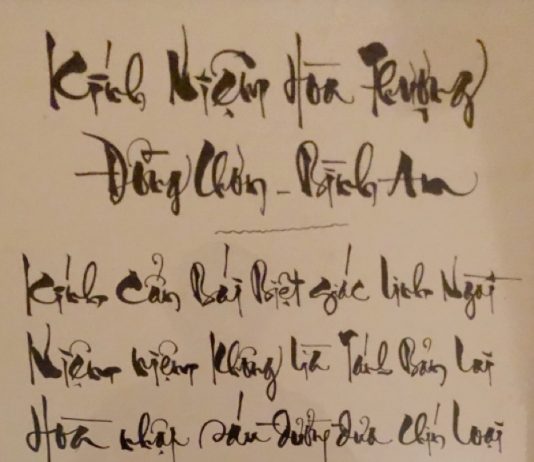 Kính Niệm Hòa Thượng
Đồng Chơn - Bình An
Kính Cẩn Bái Biệt giác linh Ngài
Niệm niệm Không lìa Tánh Bản Lai
Hòa nhập sáu đường đưa Chín Loại